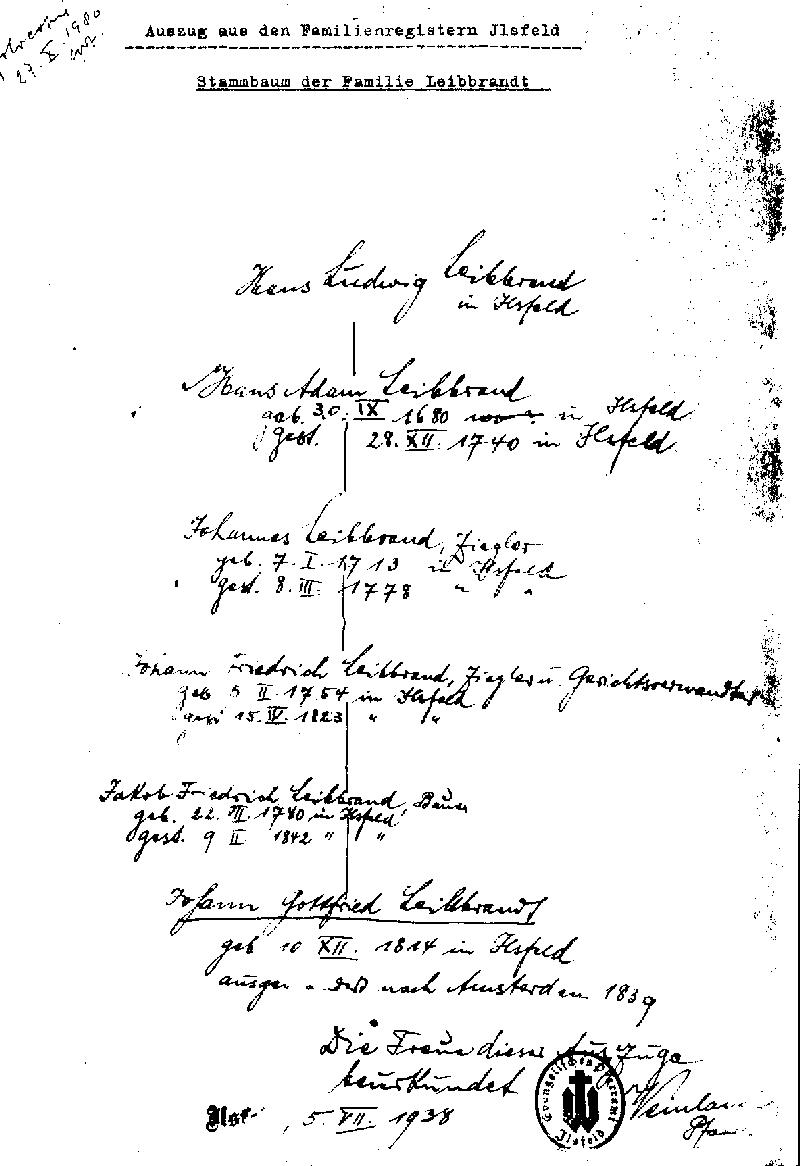 27. X 1980
Auszug aus den Familienregistern Jlsfeld
Stammbaum der Familie Leibbrandt
Hans Ludwig Leibbrand
in Ilsfeld
Hans Adam Leibbrand
geb. 30. IX 1680 in Ilsfeld
gest. 28. XII. 1740 in Ilsfeld
Johannes Leibbrand, Ziegler
geb. 7. I. 1713 in Ilsfeld
gest. 8. III. 1778 " "
Johann Friedrich Leibbrand, Ziegler u. Gerichtsverwandter
geb 5 II. 1754 in Ilsfeld
gest 15. IV. 1823 " "
Jakob Friedrich Leibbrand, Bauer
geb. 22. in Ilsfeld
gest. 9 II 1842 " "
Johann Gottfried Leibbrandt
geb 10 XII. 1814 in Ilsfeld
nach Amsterdam 1839
Die Treue dieser Auszüge
beurkundet
5. VII. 1938
Evangelisches Pfarramt
Ilsfeld